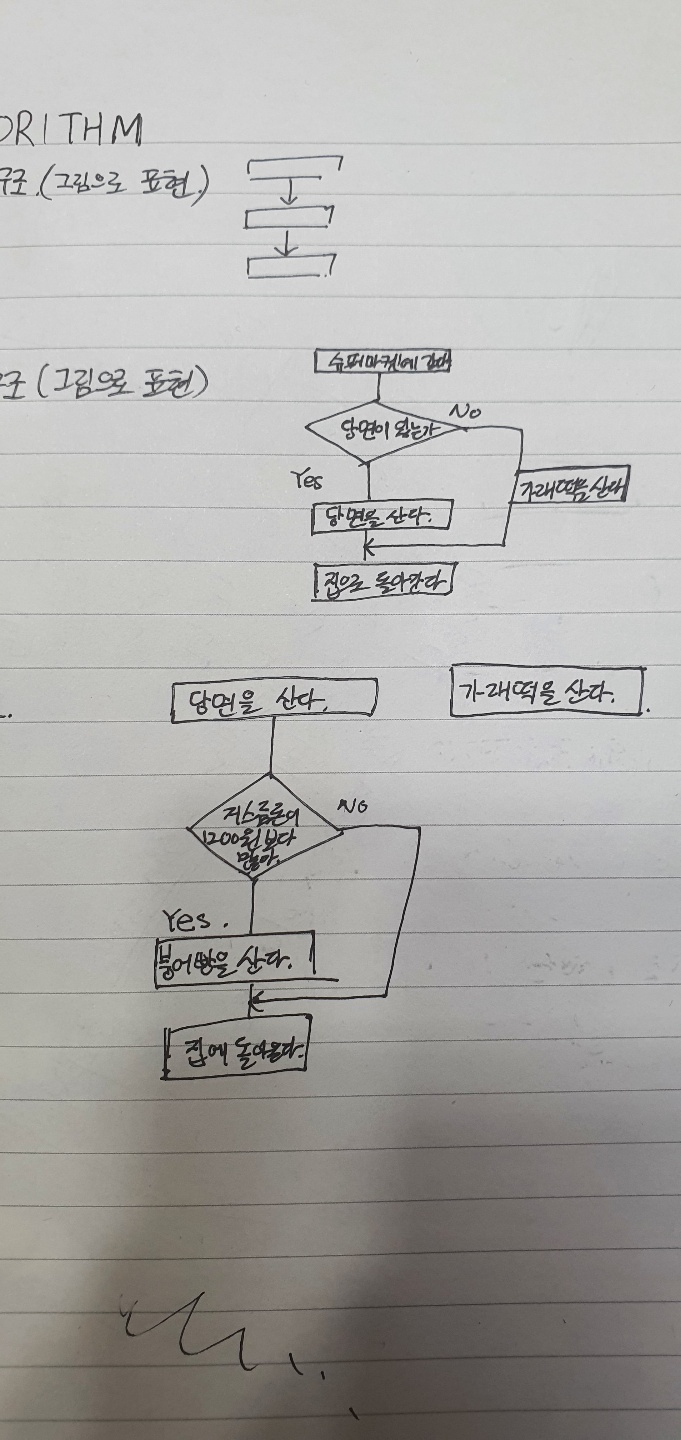 ORITHM
구조.(그림으로 표현.)
구조 (그림으로 표현)
슈퍼마켓에 간다
No
당면이 있는가
Yes
가래떡을 산다
당면을 산다.
집으로 돌아간다
당면을 산다.
가래떡을 산다.
No
1200원 보다
Yes.
붕어빵을 산다.
집에 돌아온다.